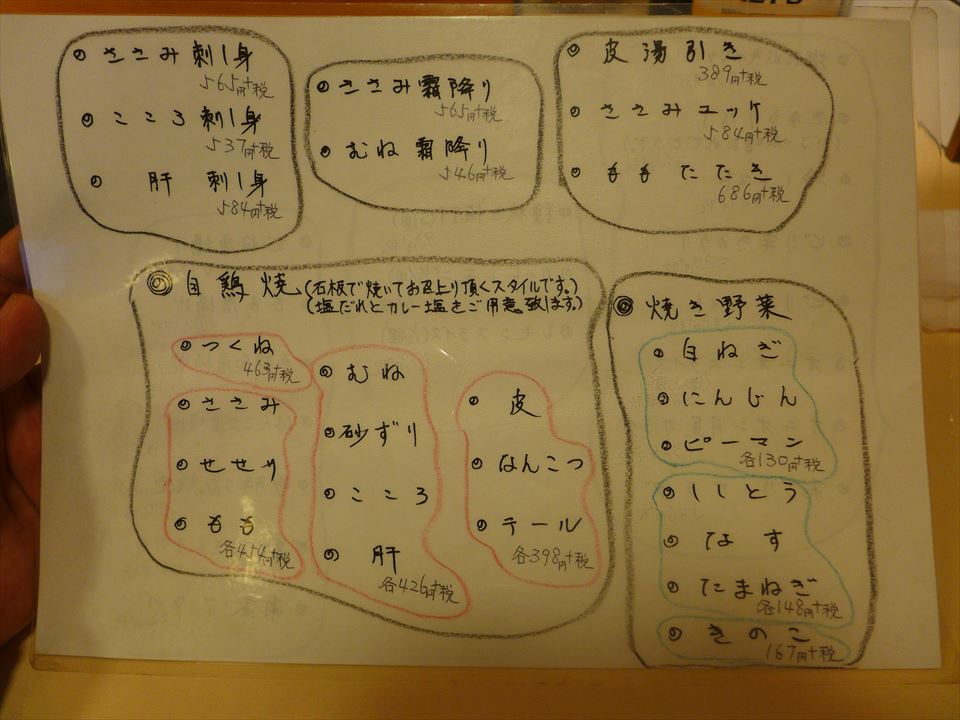 ささみ刺し身
565円+税
こころ刺し身
537円+税
肝 刺し身
584円+税
ささみ霜降り
565円+税
むね霜降り
546円+税
皮湯引き
389円+税
ささみユッケ
584円+税
ももたたき
686円+税
◎自鶏焼(石板で焼いてお召上り頂くスタイルです。)
(塩だれとカレー塩をご用意致します。)
つくね
463円+税
ささみ
せせり
もも
各454円+税
むね
砂ずり
こころ
肝
各426円+税
皮
なんこつ
テール
各398円+税
◎焼き野菜
白ねぎ
にんじん
ピーマン
各130円+税
ししとう
なす
たまねぎ
各148円+税
きのこ
167円+税